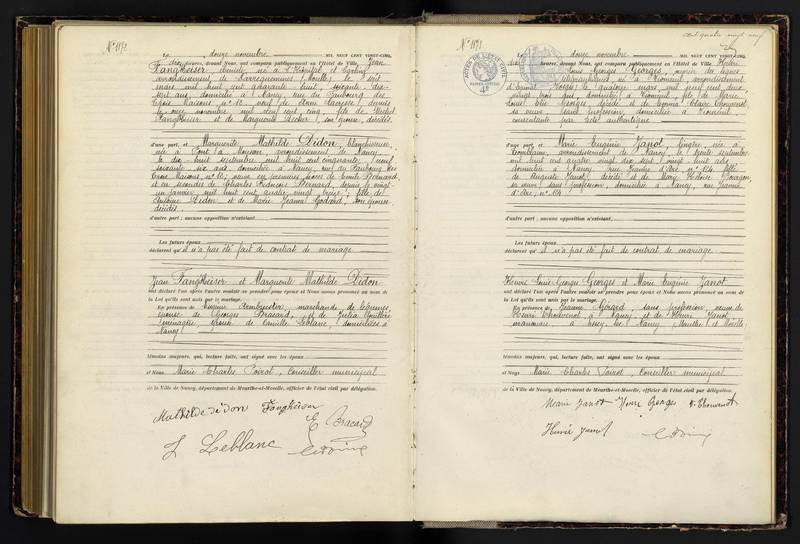 N° 1172
Le douze novembre MIL NEUF CENT VINGT-CINQ,
dix heures, devant Nous, ont comparu publiquement en l'Hôtel de Ville, Jean
Fangheiser,
arrondissement de Sarreguemines (Moselle) le huit
mars mil huit cent quarante huit, soixante dix-
sept ans, domicilié à Nancy, rue du Faubourg des
Trois Maisons n° 12, veuf de depuis
novembre mil neuf cent cinq, fils de Michel
Fangheiser et de Marguerite Becker, son épouse, décédés
d'une part, et Marguerite Mathilde Didon, blanchisseuse,
née à Pont à Mousson arrondissement de Nancy,
le dix huit septembre mil huit cent cinquante neuf
soixante six ans, domiciliée à Nancy, rue du Faubourg des
Trois Maisons, n° 12, veuve en premières noces de Bernard
et en secondes de Charles François Bernard, depuis le vingt-
un janvier mil huit cent quatre vingt treize; fille de
Antoine Didon et de Marie Jeanne Godard, son épouse
décédés
d'autre part; aucune opposition n'existant
Les futurs époux
déclarent qu'il n'a pas été fait de contrat de mariage
Jean Fangheiser et Marguerite Mathilde Didon
ont déclaré l'un après l'autre vouloir se prendre pour époux et Nous avons prononcé au nom de
la Loi qu'ils sont unis par le mariage.
En présence de Eugénie marchande de légumes
épouse de Georges Bracard, et de Julia
ménagère, épouse de Camille Leblanc, domiciliées à
Nancy
témoins majeurs, qui, lecture faite, ont signé avec les époux
et Nous Marie Charles Poirot, Conseiller municipal
de la Ville de Nancy, département de Meurthe-et-Moselle, officier de l'état civil par délégation.
Mathilde didon Fangheiser
E Bracard
J Leblanc
cent quatre vingt neuf
N° 1173
Le douze novembre MIL NEUF CENT VINGT-CINQ,
heures, devant Nous, ont comparu publiquement en l'Hôtel de Ville, Henri
Louis Georges Georges,
né à arrondissement
d'Epinal (Vosges) le quatorze mars mil neuf cent deux,
vingt trois ans, domicilié à fils de Marie
Louis Elie Georges, décédé et de Claire Thouvenot
sa veuve, sans profession, domiciliée à
consentante par acte authentique
d'une part, et Marie Eugénie Janot, lingère, née à
Tomblaine arrondissement de Nancy le trente septembre
mil huit cent quatre vingt dix sept, vingt huit ans
domiciliée à Nancy, rue Jeanne d'Arc n° 124, fille
de Auguste Janot, décédé et de Marie
sa veuve, sans profession, domiciliée à Nancy, rue Jeanne
d'Arc, n° 124
d'autre part; aucune opposition n'existant
Les futurs époux
déclarent qu'il n'a pas été fait de contrat de mariage
Henri Louis Georges Georges et Marie Eugénie Janot
ont déclaré l'un après l'autre vouloir se prendre pour époux et Nous avons prononcé au nom de
la Loi qu'ils sont unis par le mariage.
En présence de Jeanne Gérard, sans profession, veuve de
Henri Thouvenot à Nancy et de Henri Janot,
manoeuvre à Essey lès Nancy (Meurthe et Moselle)
témoins majeurs, qui, lecture faite, ont signé avec les époux
et Nous Marie Charles Poirot, Conseiller municipal
de la Ville de Nancy, département de Meurthe-et-Moselle, officier de l'état civil par délégation.
Marie Janot Henri Georges Thouvenot
Henri Janot